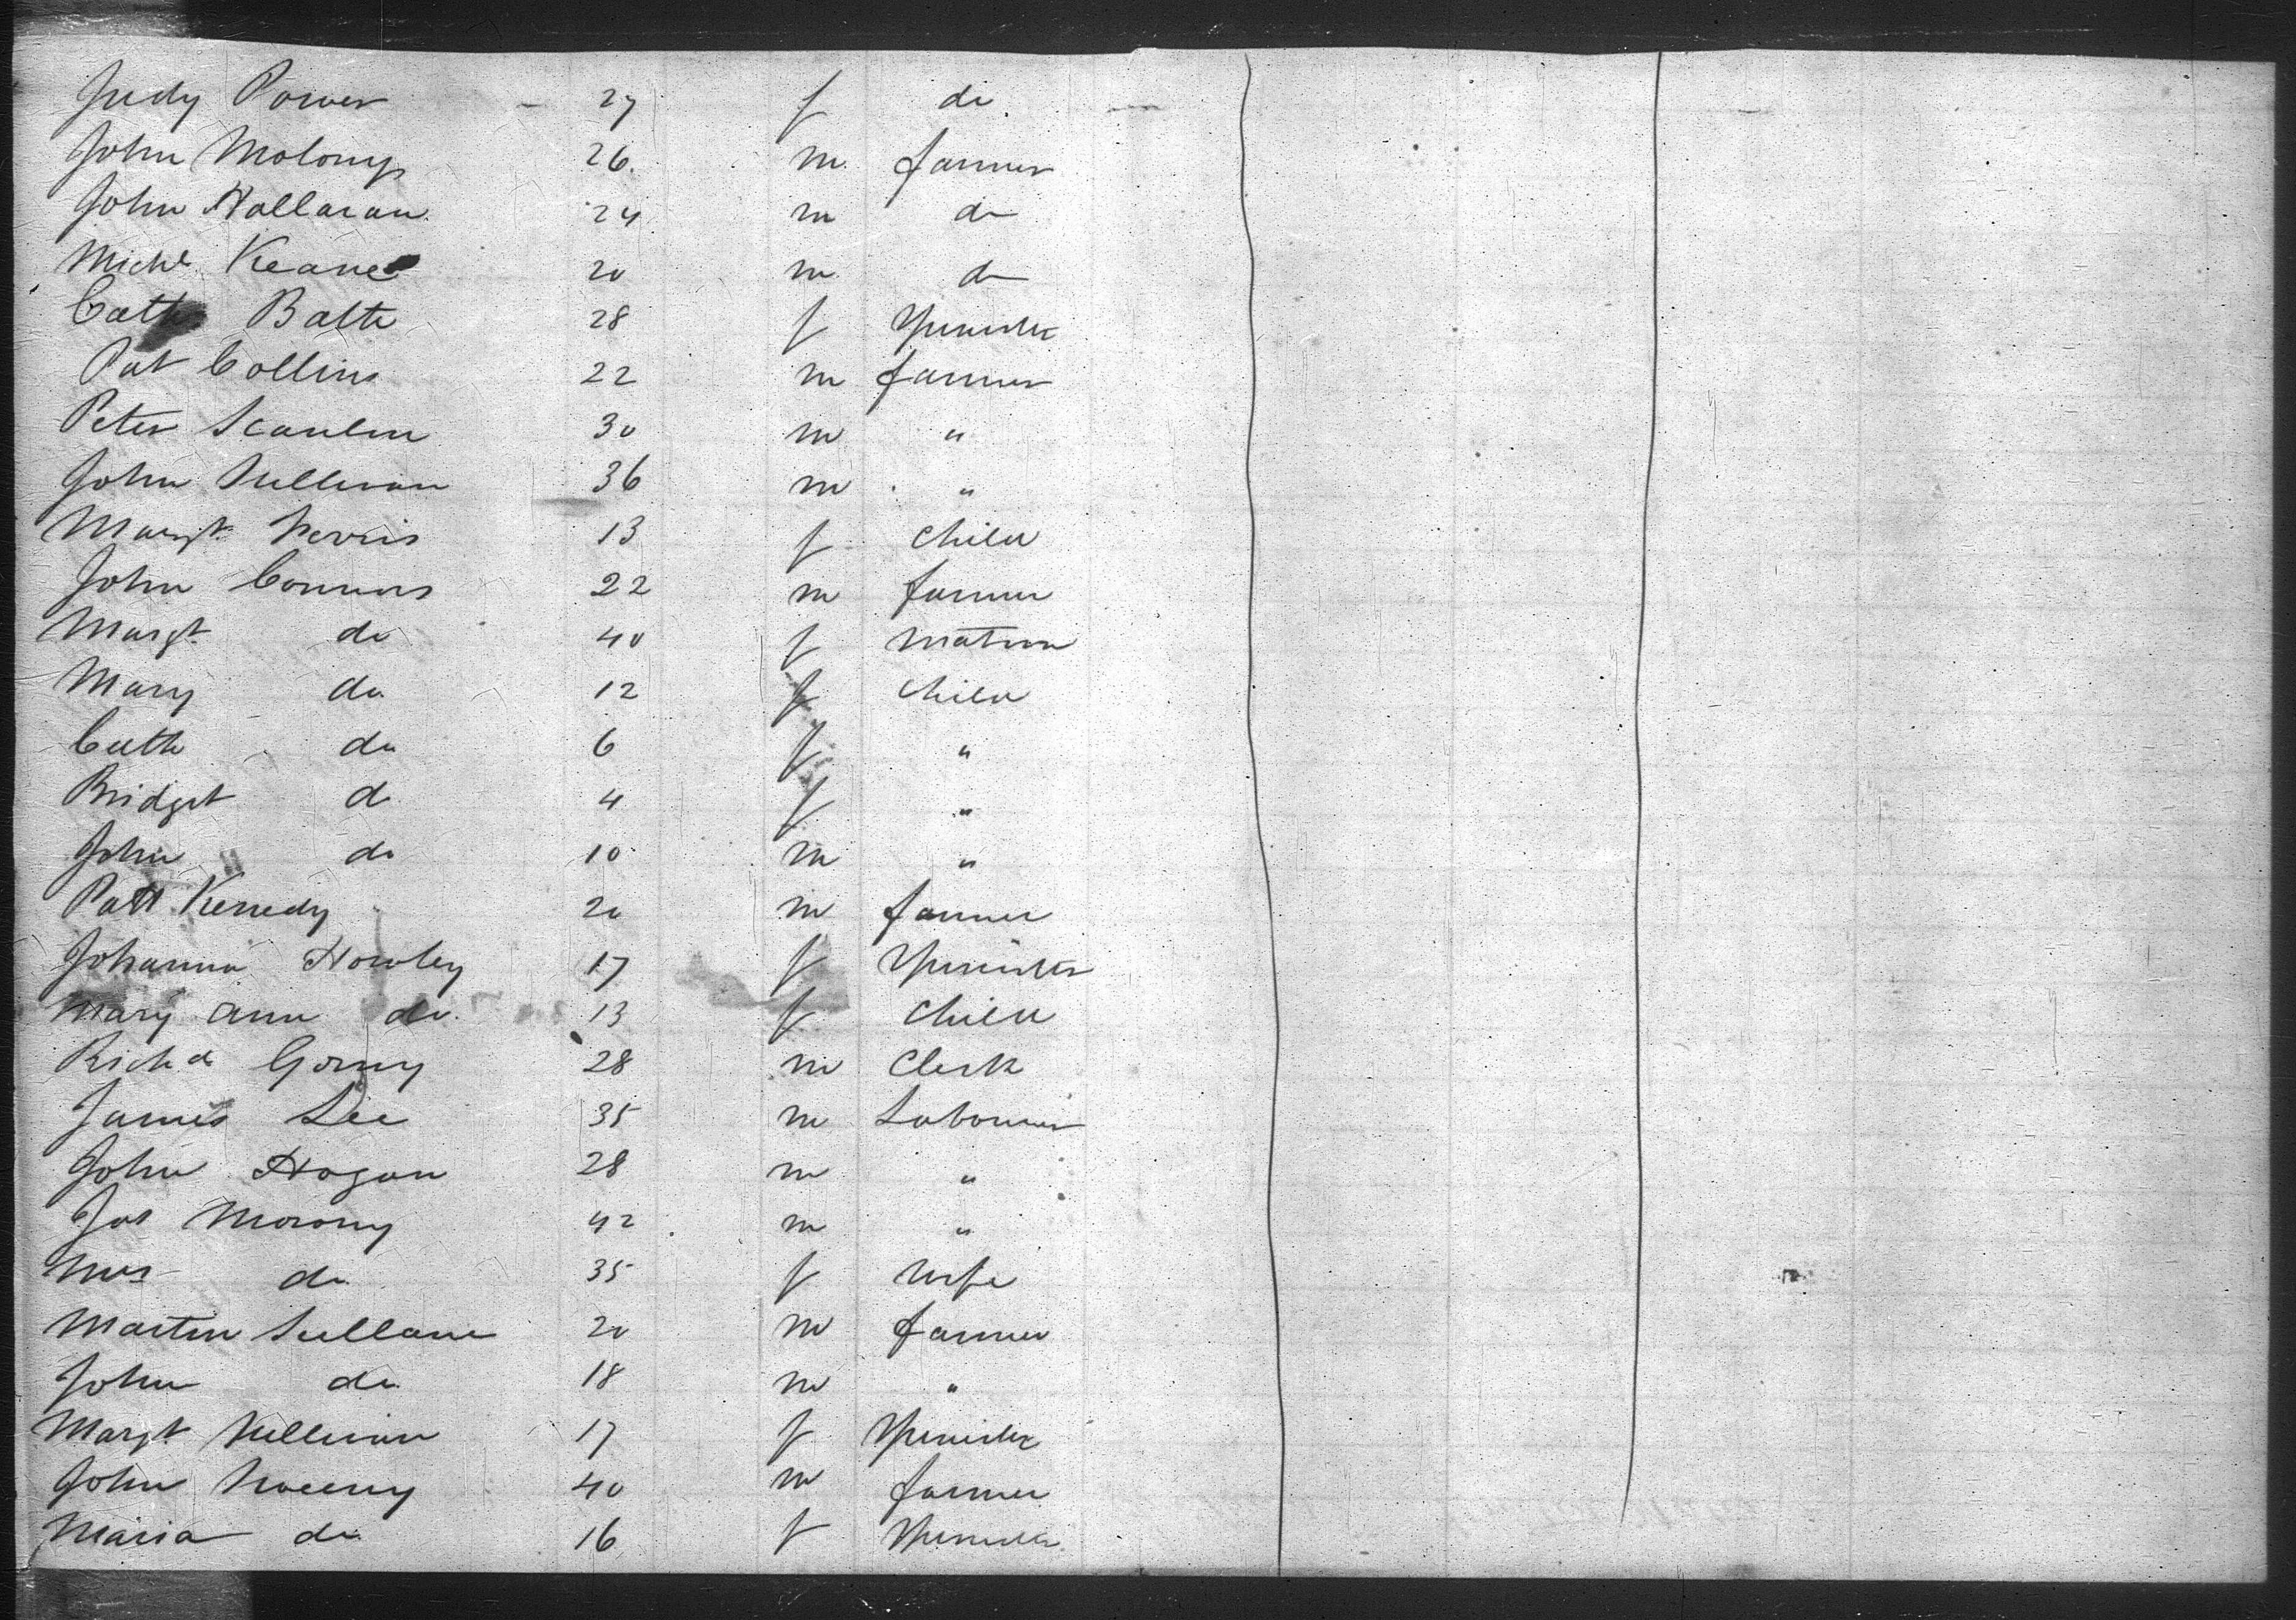 Judy Power 27 f do
John Molony 26 m farmer
John Hallaran 24 m do
Michl Keane 20 m do
Cath Balte 28 f Spinster
Pat Collins 22 m farmer
Peter Scanlon 30 m "
John Sullivan 36 m "
Margt 13 f Child
John Connors 22 m farmer
Margt do 40 f Matron
Mary do 12 f Child
Cath do 6 f "
Bridget do 4 f "
John do 10 m "
Patt Kennedy 20 m farmer
Johanna Howley 17 f Spinster
Mary Ann do 13 f Child
Richd Gorry 28 m Clerk
James Lee 35 m Labourer
John Hogan 28 m "
Jas Morony 42 m "
Mrs do 35 f Wife
Martin Sullane 20 m farmer
John do 18 m "
Margt Sullivan 17 f Spinster
John Sweeny 40 m farmer
Maria do 16 f Spinster